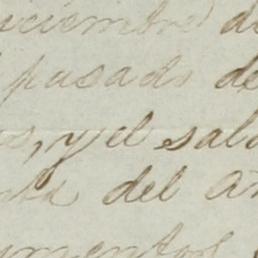 diciembre de
pasado de
s, y el sal
nta del a
umentos